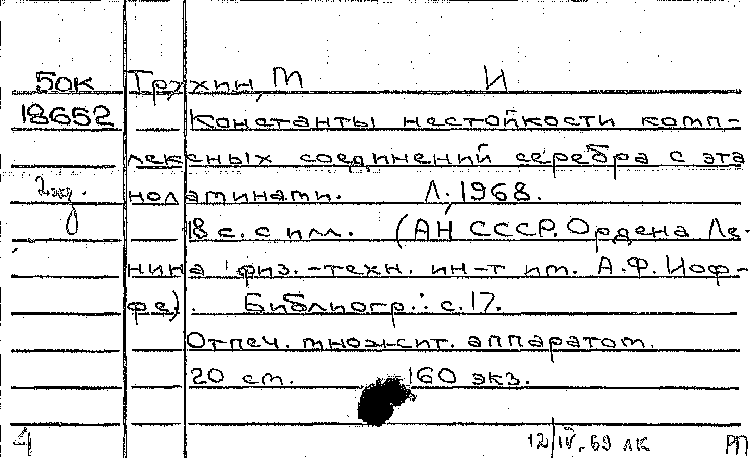 50К Трухин, М И
18652 Константы нестойкости комп-
лексных соединений серебра с эта
2экз. ноламинами. Л., 1968.
18 с. с илл. (АН СССР. Ордена Ле-
нина физ.-техн. ин-т им. А.Ф. Иоф-
фе). Библиогр.: с. 17.
Отпеч. множит. аппаратом.
20 см. 160 экз.
4 12/IV.69 лк РП